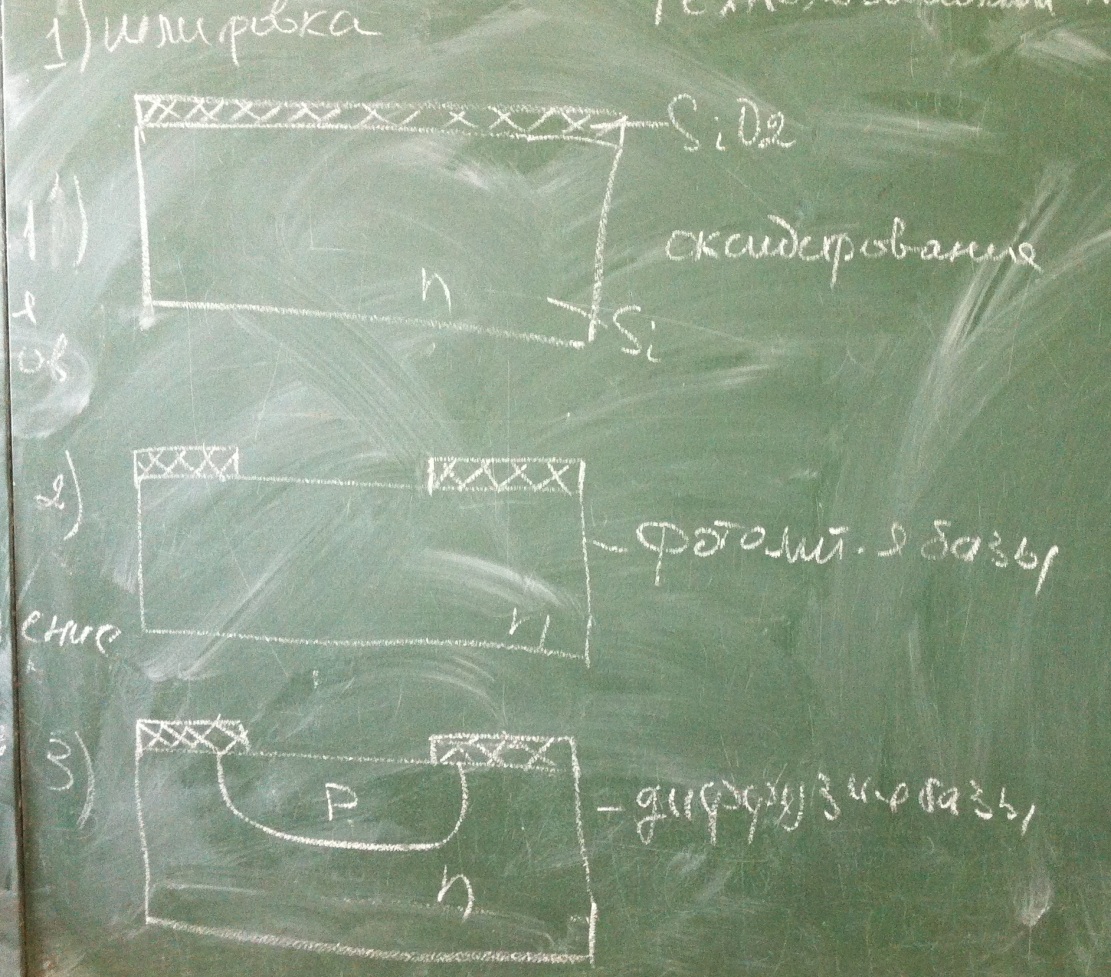 1) шлировка
SiO2
1)
оксидирование
n
Si
я
ов
2)
фотолит.я базы
n
ение
3)
P
- диффузия базы
n